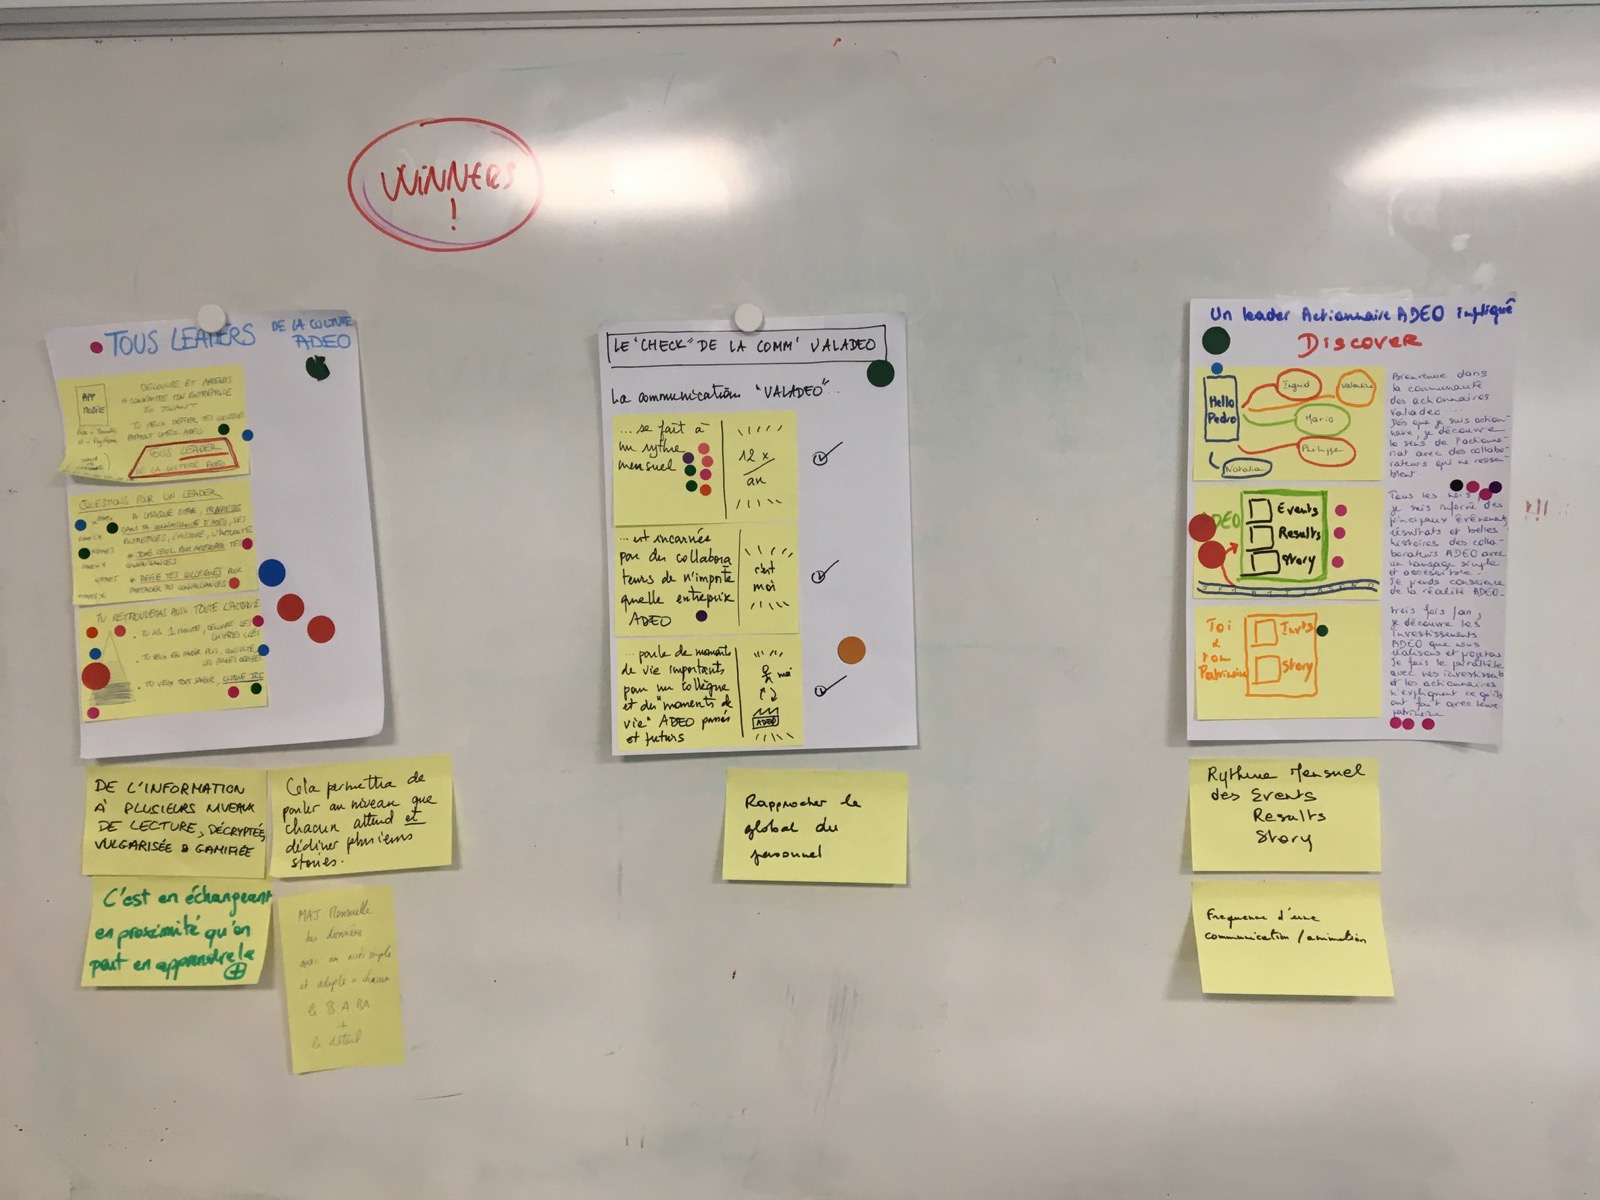 WINNERS
!
TOUS LEADERS DE LA CULTURE
ADEO
APP
MOBILE
DECOUVRE ET APPRENDS
A CONNAITRE TON ENTREPRISE
EN JOUANT
TU PEUX DEFIER TES COLLEGUES
PARTOUT CHEZ ADEO
TOUS LEADER
DE LA CULTURE ADEO
QUESTIONS POUR UN LEADER
A CHAQUE ETAPE, PROGRESSE
DANS TA CONNAISSANCE D'ADEO, SES
ENTREPRISES, L'HISTOIRE, L'ACTUALITE
CONNAISSANCES
* DEFIE TES COLLEGUES POUR
PARTAGER TES CONNAISSANCES
TU RETROUVERAS AUSSI TOUTE L'ACTUALITE
. TU AS 1 MINUTE, DECOUVRE LES
CHIFFRES CLES
. TU VEUX EN SAVOIR PLUS, CONSULTE
. TU VEUX TOUT SAVOIR, CLIQUE ICI
DE L'INFORMATION
À PLUSIEURS NIVEAUX
DE LECTURE, DÉCRYPTÉE,
VULGARISÉE & GAMIFIÉE
Cela permettra de
parler au niveau que
chacun attend et
décliner plusieurs
stories.
C'est en échangeant
en proximité qu'on
peut en apprendre le
+
MAJ Mensuelle
des données
avec un outil simple
et adapté à chacun
le B A BA
+
le détail
LE "CHECK" DE LA COMM' VALADEO
La communication "VALADEO"...
... se fait à
un rythme
mensuel
12 x
an
... est incarnée
par des collabora
teurs de n'importe
quelle entreprise
ADEO
c'est
moi
... parle de moments
de vie importants
pour un collègue
et des "moments de
vie" ADEO passés
et futurs
moi
ADEO
Rapprocher le
global du
personnel
Un leader Actionnaire ADEO impliqué
Discover
Hello
Pedro
Ingrid
Valentine
Mario
Philippe
Natalia
Bienvenue dans
la communauté
des actionnaires
valadeo....
Dès que je suis action-
naire, je découvre
le sens de l'actionna-
riat avec des collabo-
rateurs qui me ressem-
blent
ADEO
Events
Results
Story
Tous les mois,
je suis informé des
principaux évènements,
résultats et belles
histoires des colla-
borateurs ADEO avec
un langage simple
et accessible.
Je prends conscience
de la réalité ADEO.
Toi
&
ton
Patrimoine
Invts
Story
trois fois / an,
je découvre les
investissements
ADEO que nous
réalisons et projetons
Je fais le parallèle
avec mes investissements
et les actionnaires
m'expliquent ce qu'ils
ont fait avec leur
patrimoine
!!!
Rythme Mensuel
des Events
Results
Story
Frequence d'une
communication / animation